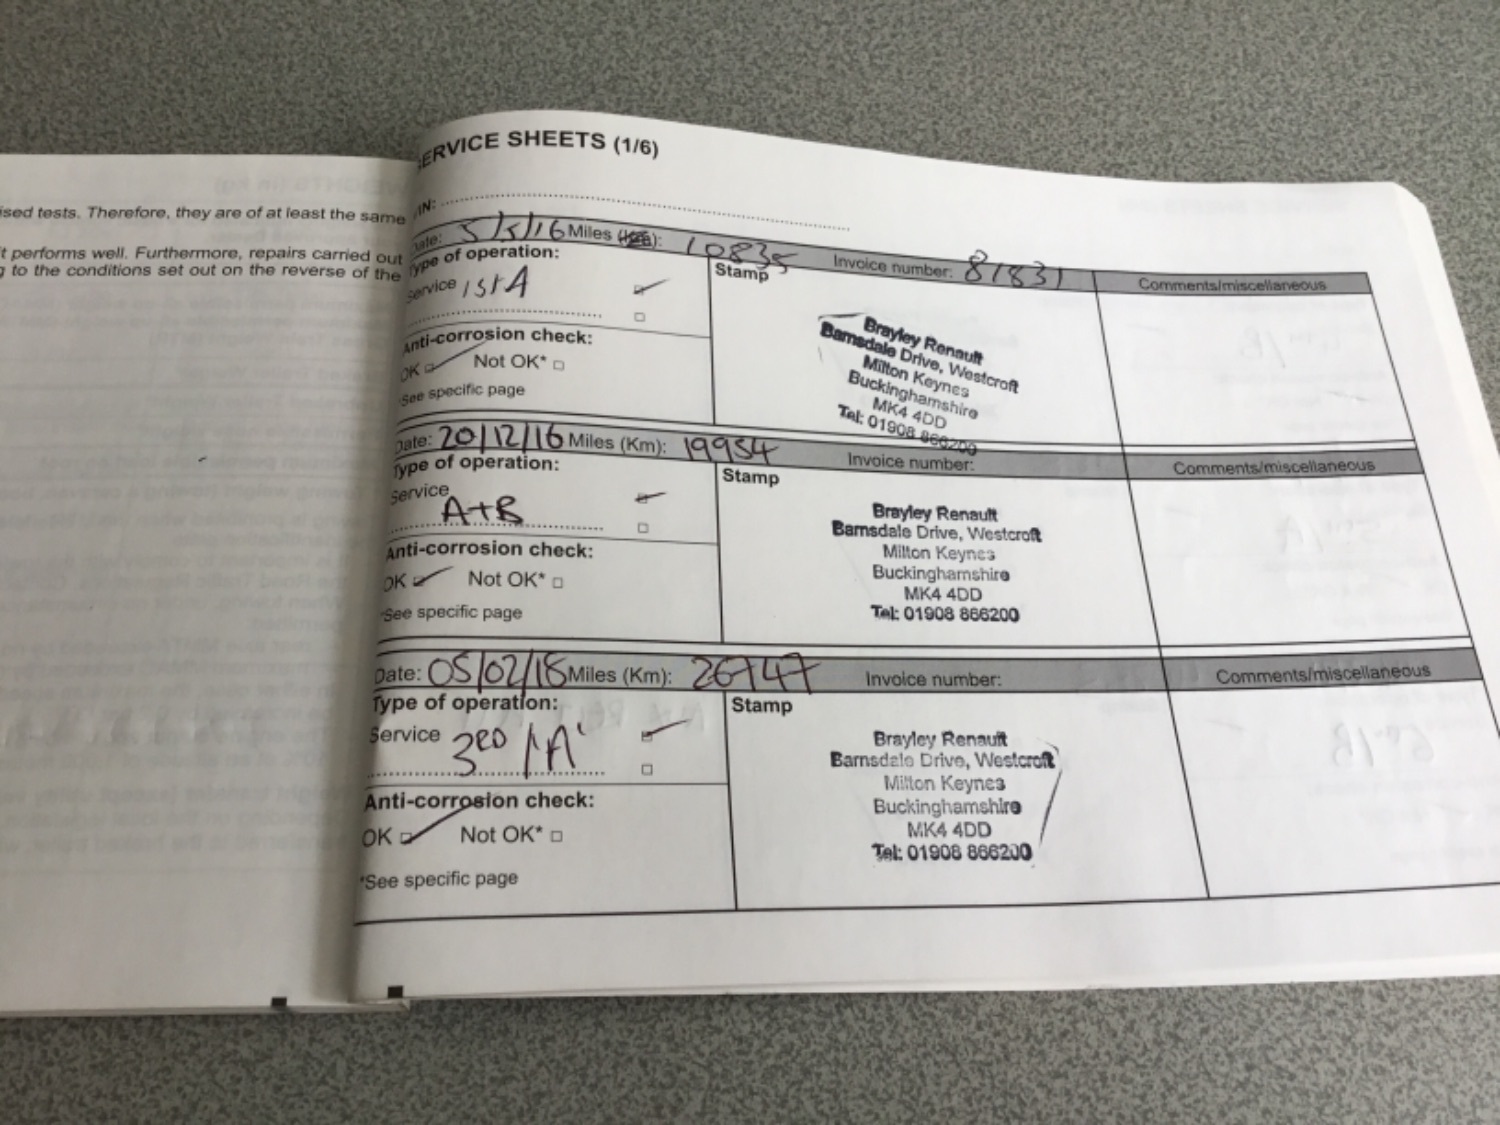 ised tests. Therefore, they are of at least the same
t performs well. Furthermore, repairs carried out
g to the conditions set out on the reverse of the
ERVICE SHEETS (1/6)
IN:
Date: 5/5/16 Miles (Km): 10835 Invoice number: 81831
Type of operation: Stamp Comments/miscellaneous
Service 1st A
Anti-corrosion check:
OK Not OK*
*See specific page
Brayley Renault
Barnsdale Drive, Westcroft
Milton Keynes
Buckinghamshire
MK4 4DD
Tel: 01908 866200
Date: 20/12/16 Miles (Km): 19954 Invoice number:
Type of operation: Stamp Comments/miscellaneous
Service
A+B
Anti-corrosion check:
OK Not OK*
*See specific page
Brayley Renault
Barnsdale Drive, Westcroft
Milton Keynes
Buckinghamshire
MK4 4DD
Tel: 01908 866200
Date: 05/02/18 Miles (Km): 26747 Invoice number: Comments/miscellaneous
Type of operation: Stamp
Service 3RD /'A'
Anti-corrosion check:
OK Not OK*
*See specific page
Brayley Renault
Barnsdale Drive, Westcroft
Milton Keynes
Buckinghamshire
MK4 4DD
Tel: 01908 866200